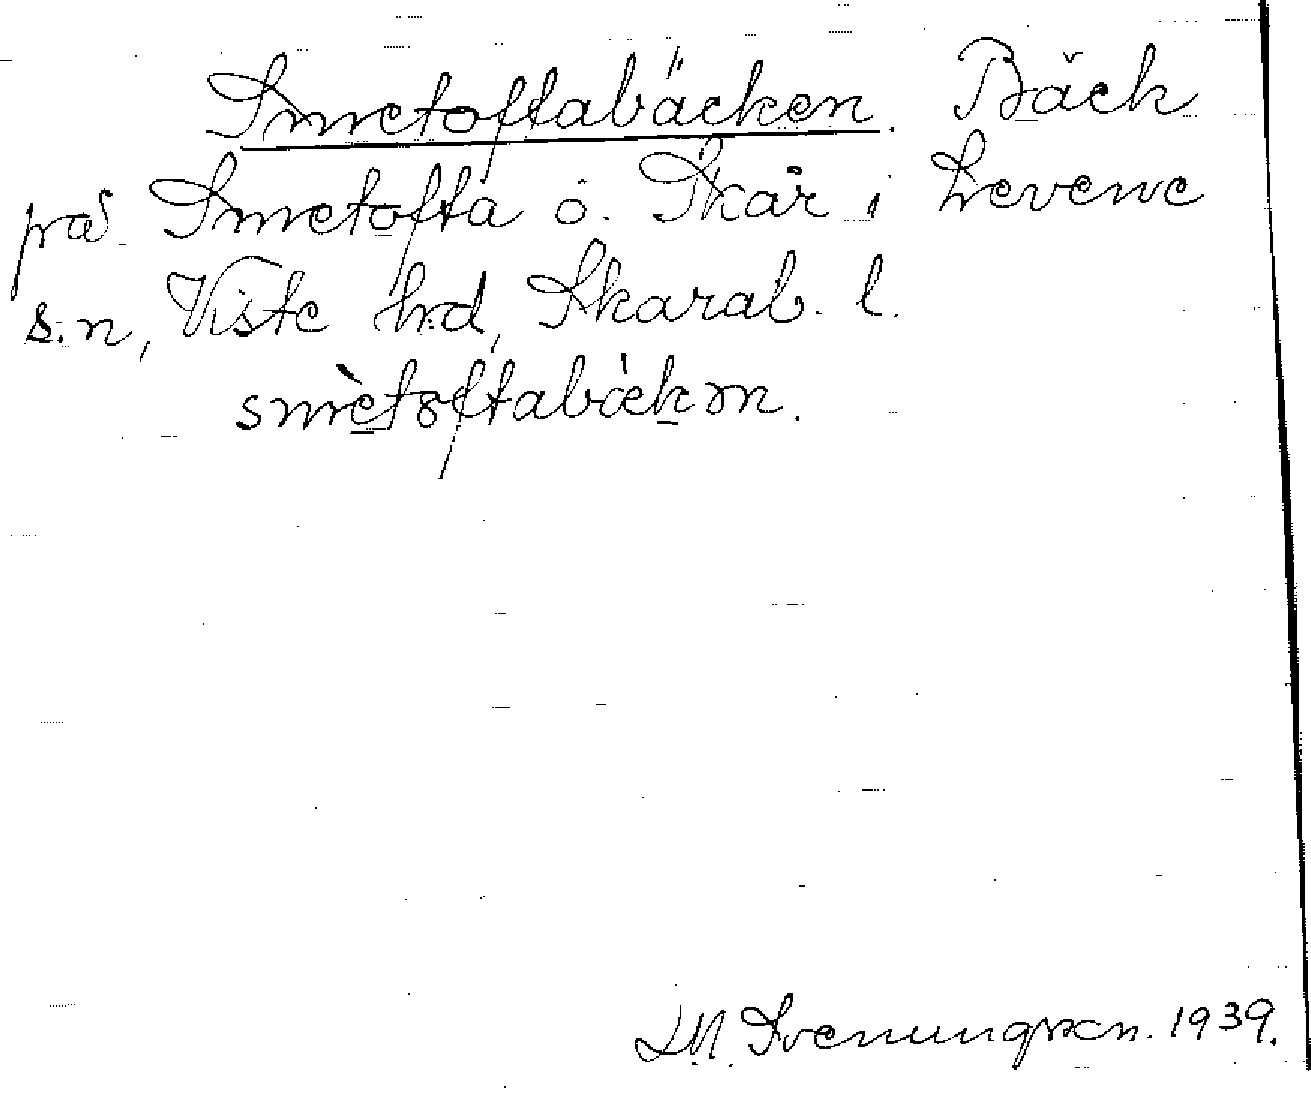 Smetoftabäcken. Bäck
på Smetofta o. Skår i Levene
s:n, Viste hd, Skarab. l.
smètoftabäkın.
Svenungsson. 1939.